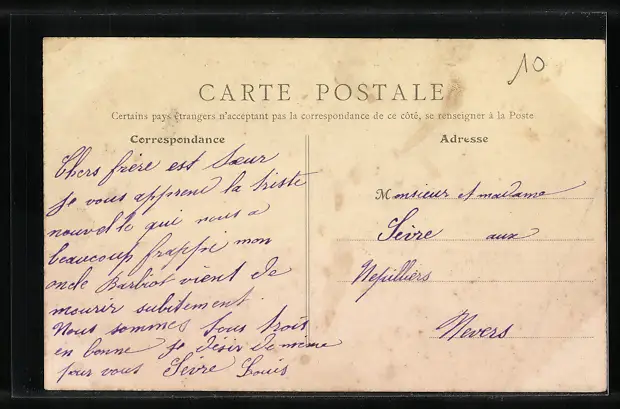 10
CARTE POSTALE
Certains pays étrangers n'acceptant pas la correspondance de ce côté, se renseigner à la Poste
Correspondance
Chers frère est Sœur
Je vous apprend la triste
nouvelle qui nous a
beaucoup frappé mon
oncle Barbiot vient de
mourir subitement.
Nous sommes tous trois
en bonne je désir de même
pour vous Seivre Louis
Adresse
Monsieur et madame
Seivre aux
Nevers